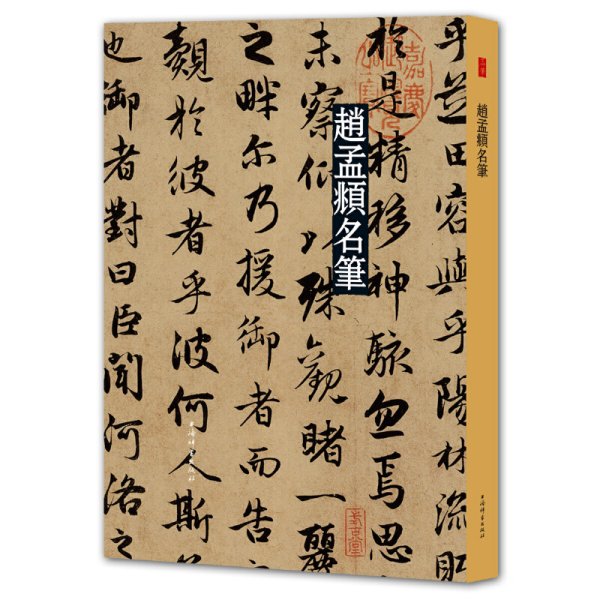 乎芝田容與乎陽林流眄
於是精移神駭忽焉思
未察仰以殊觀睹一麗
之畔尔乃援御者而告
覿於彼者乎彼何人斯
也御者對曰臣聞河洛之
趙孟頫名筆
嘉慶
上海辭書出版社
趙孟頫名筆
上海辭書出版社